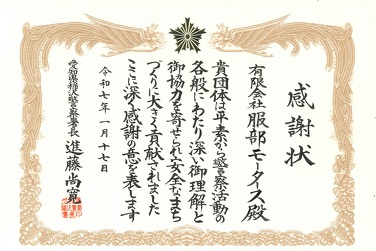 感謝状
有限会社 服部モータース殿
貴団体は平素から警察活動の
各般にわたり深い御理解と
御協力を寄せられ安全なまち
づくりに大きく貢献されました
ここに深く感謝の意を表します
令和七年一月十七日
愛知県稲沢警察署長 進藤尚寛